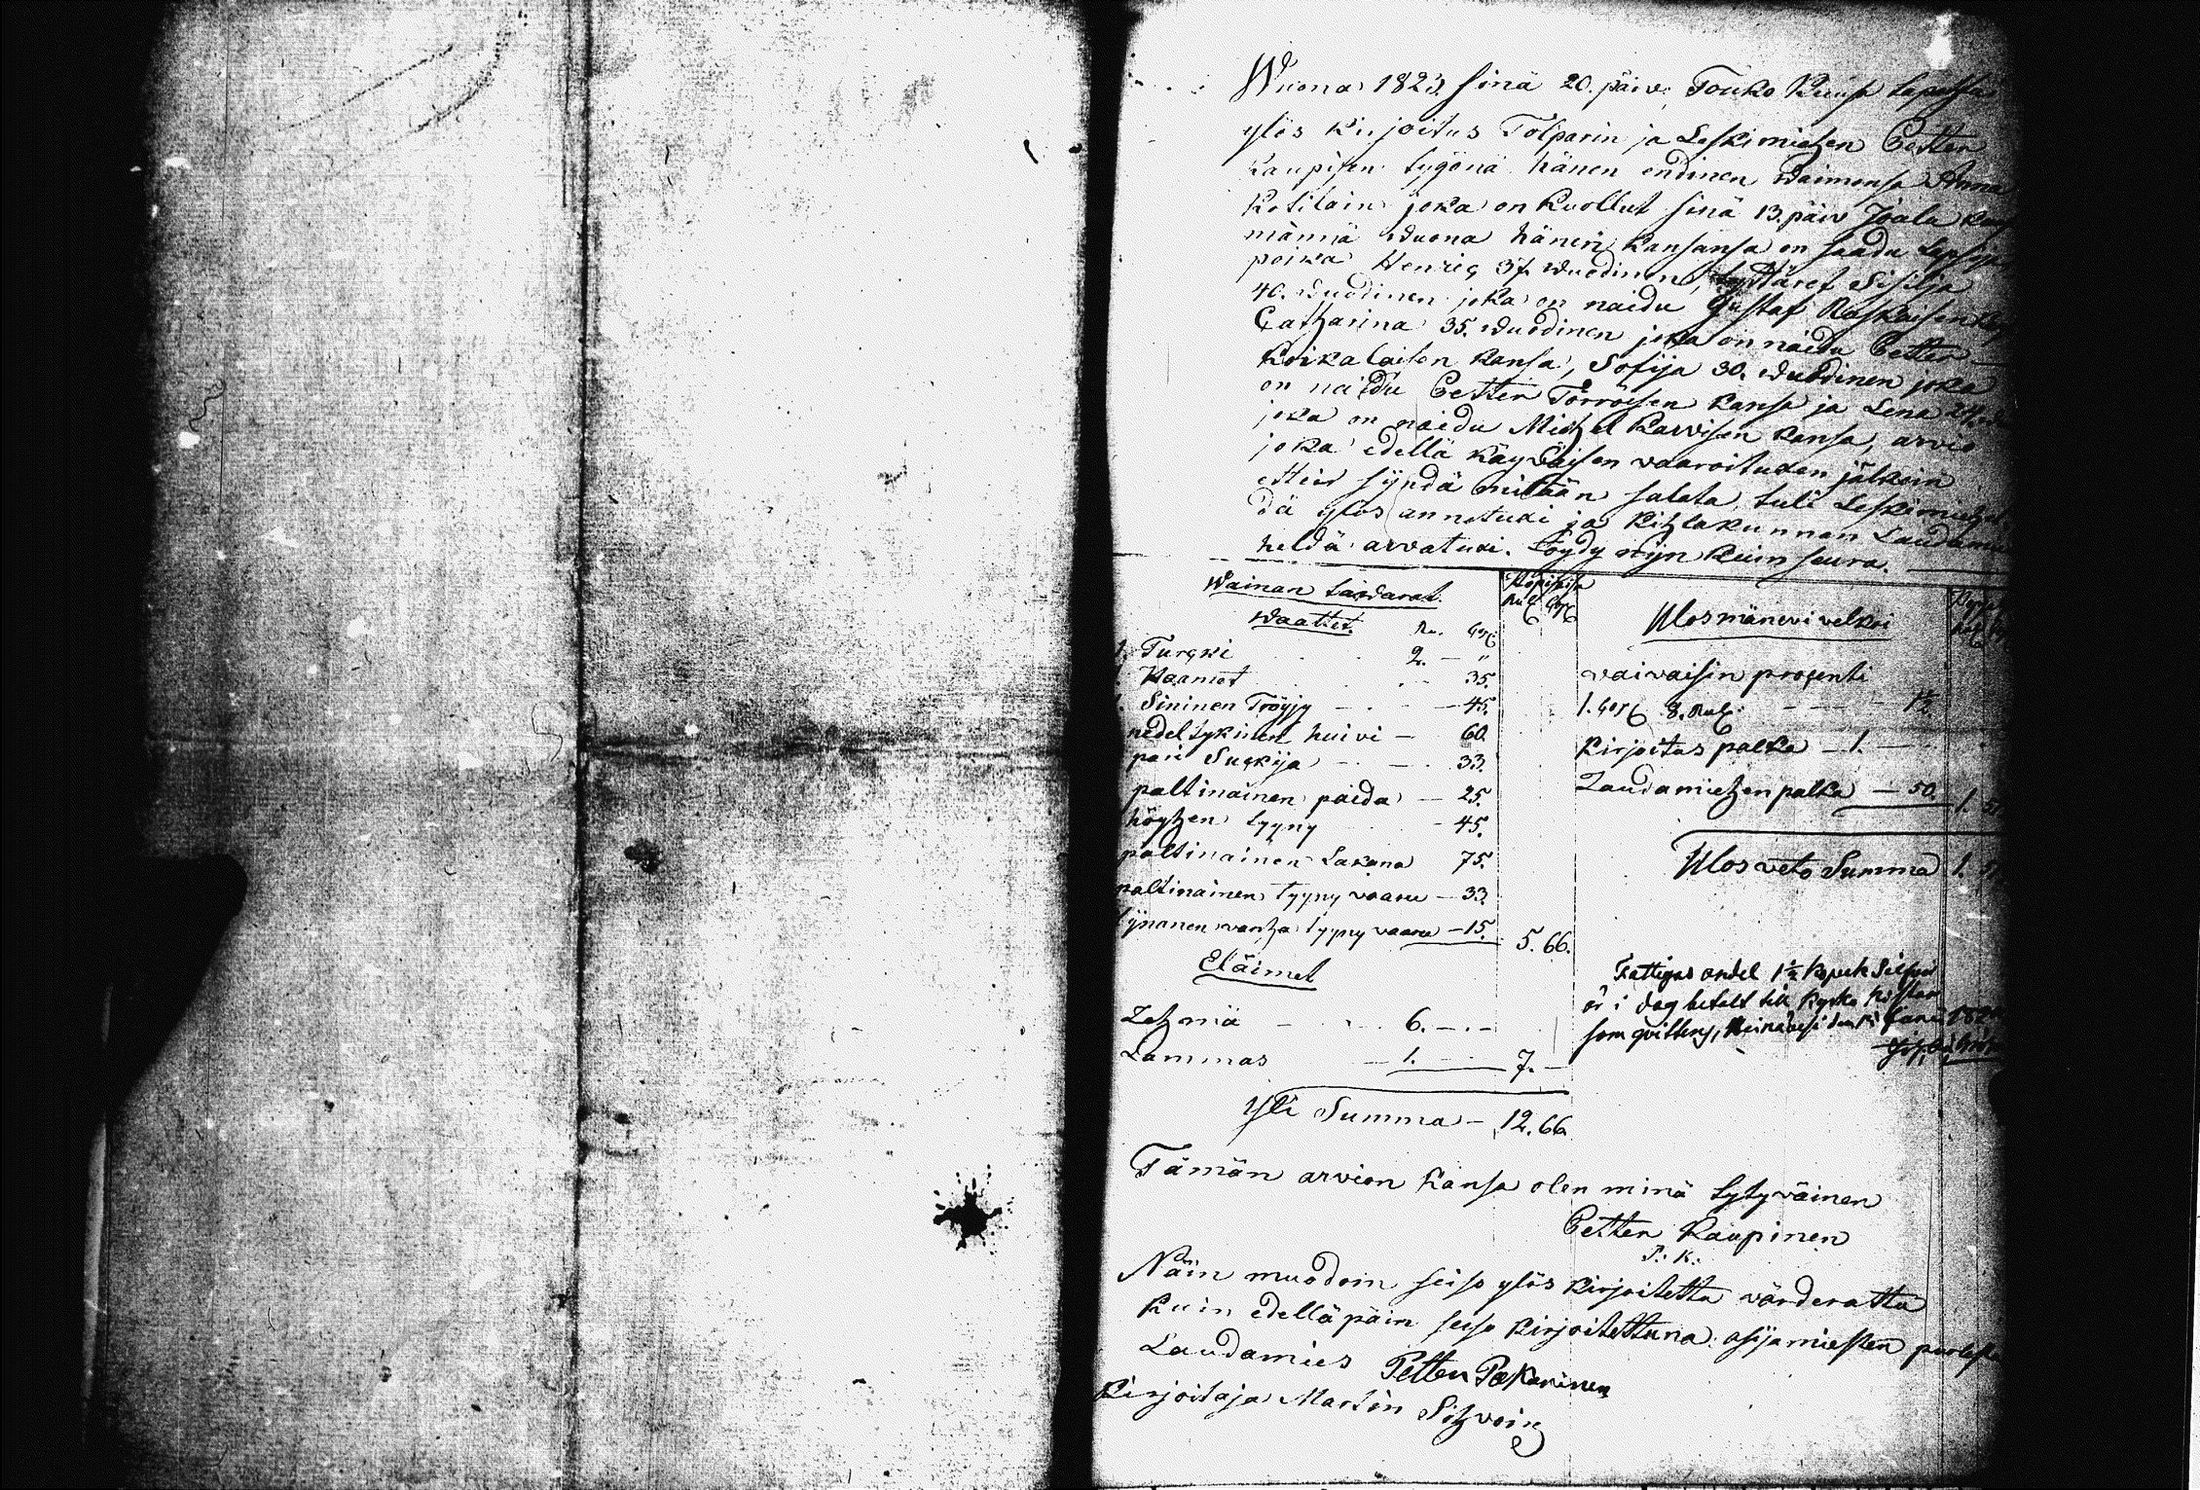 Wuona 1823 sinä 20. päiv. Touko Kuusa tapahtu
ylös kirjoitus Tolparin ja Leskimiehen Petter
Kaupisen tygönä hänen endinen waimonsa Anna
Kotilain joka on kuollut sinä 13. päiv Joulu kuu
männä wuona hänen kansansa on saadu
poika Henric 37 wuodinen, tyttäret Sisilja
40. wuodinen joka on naidu Gustaf Raskaisen
Catharina 35. wuodinen joka on naidu Petter
Koikalaisen kansa, Sofija 30. wuodinen joka
on naidu Petter Törröisen kansa ja Lena
joka on naidu Michel Karvisen kansa, arvio
joka edellä käyväisen vaaroituxen jälkein
ettei syydä mitään salata, tuli Leskimiehel
dä ylös annetuxi ja kihlakunnan Laudamie
heldä arvatuxi. Löydy nijn kuin seura.
Wainan tawarat.
Waattet. Ru. Cop.
1. Turcki 2. — "
Haamet 35.
1. Sininen Tröyjy — 45.
nedeltykinen huivi — 60.
pari Suckija — 33.
paltinainen paida — 25.
höyhen tyyny — 45.
paltinainen Lakana 75.
paltinainen tyyny vaaru — 33.
vanha tyyny vaaru — 15. 5. 66.
Eläimet
Lehmiä 6. —
Lammas 1. 7. —
Yli Summa — 12. 66.
Hopiaisa
Rub Cop
Ulosmänevi velkoi
vaivaisin procenti
1. Cop 8. Rub.
kirjoitus palka — 1. —
Laudamiehen palka — 50. 1.
Ulos veto Summa 1.
Fattigas andel 1½ kopek Silfver
är i dag betalt till Kyrko kistan
som qvitteras,
Tämän arvion kansa olen minä tytyväinen
Petter Kaupinen
P. K.
Näin muodoin seiso ylös kirjoitettu värderattu
kuin edelläpäin seiso kirjoitettuna. asijamiesten puolesta
Laudamies Petter Pakarinen
Kirjoitaja Martin Sihvoin